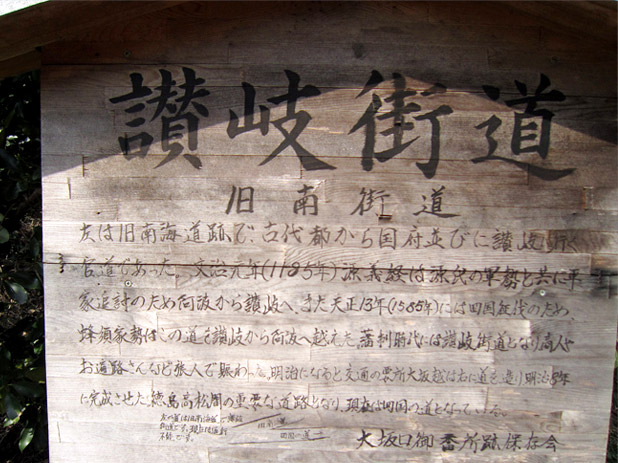 讃岐街道
旧南街道
左は旧南海道跡で、古代都から国府並びに讃岐に行く
官道であった、文治元年(1185年)源義経は源氏の軍勢と共に平
家追討のため阿波から讃岐へ、また天正13年(1585年)には四国征伐のため、
蜂須家勢はこの道を讃岐から阿波へ越えた、藩制時代には讃岐街道となり商人や
お遍路さんなど旅人で賑わった、明治になると交通の要所大坂越は右に道を造り明治5年
に完成させた、徳島高松間の重要な道路となり、現在は四国の道となっている。
左の道は旧南海道で
旧南
四国の道
大坂口御番所跡保存会